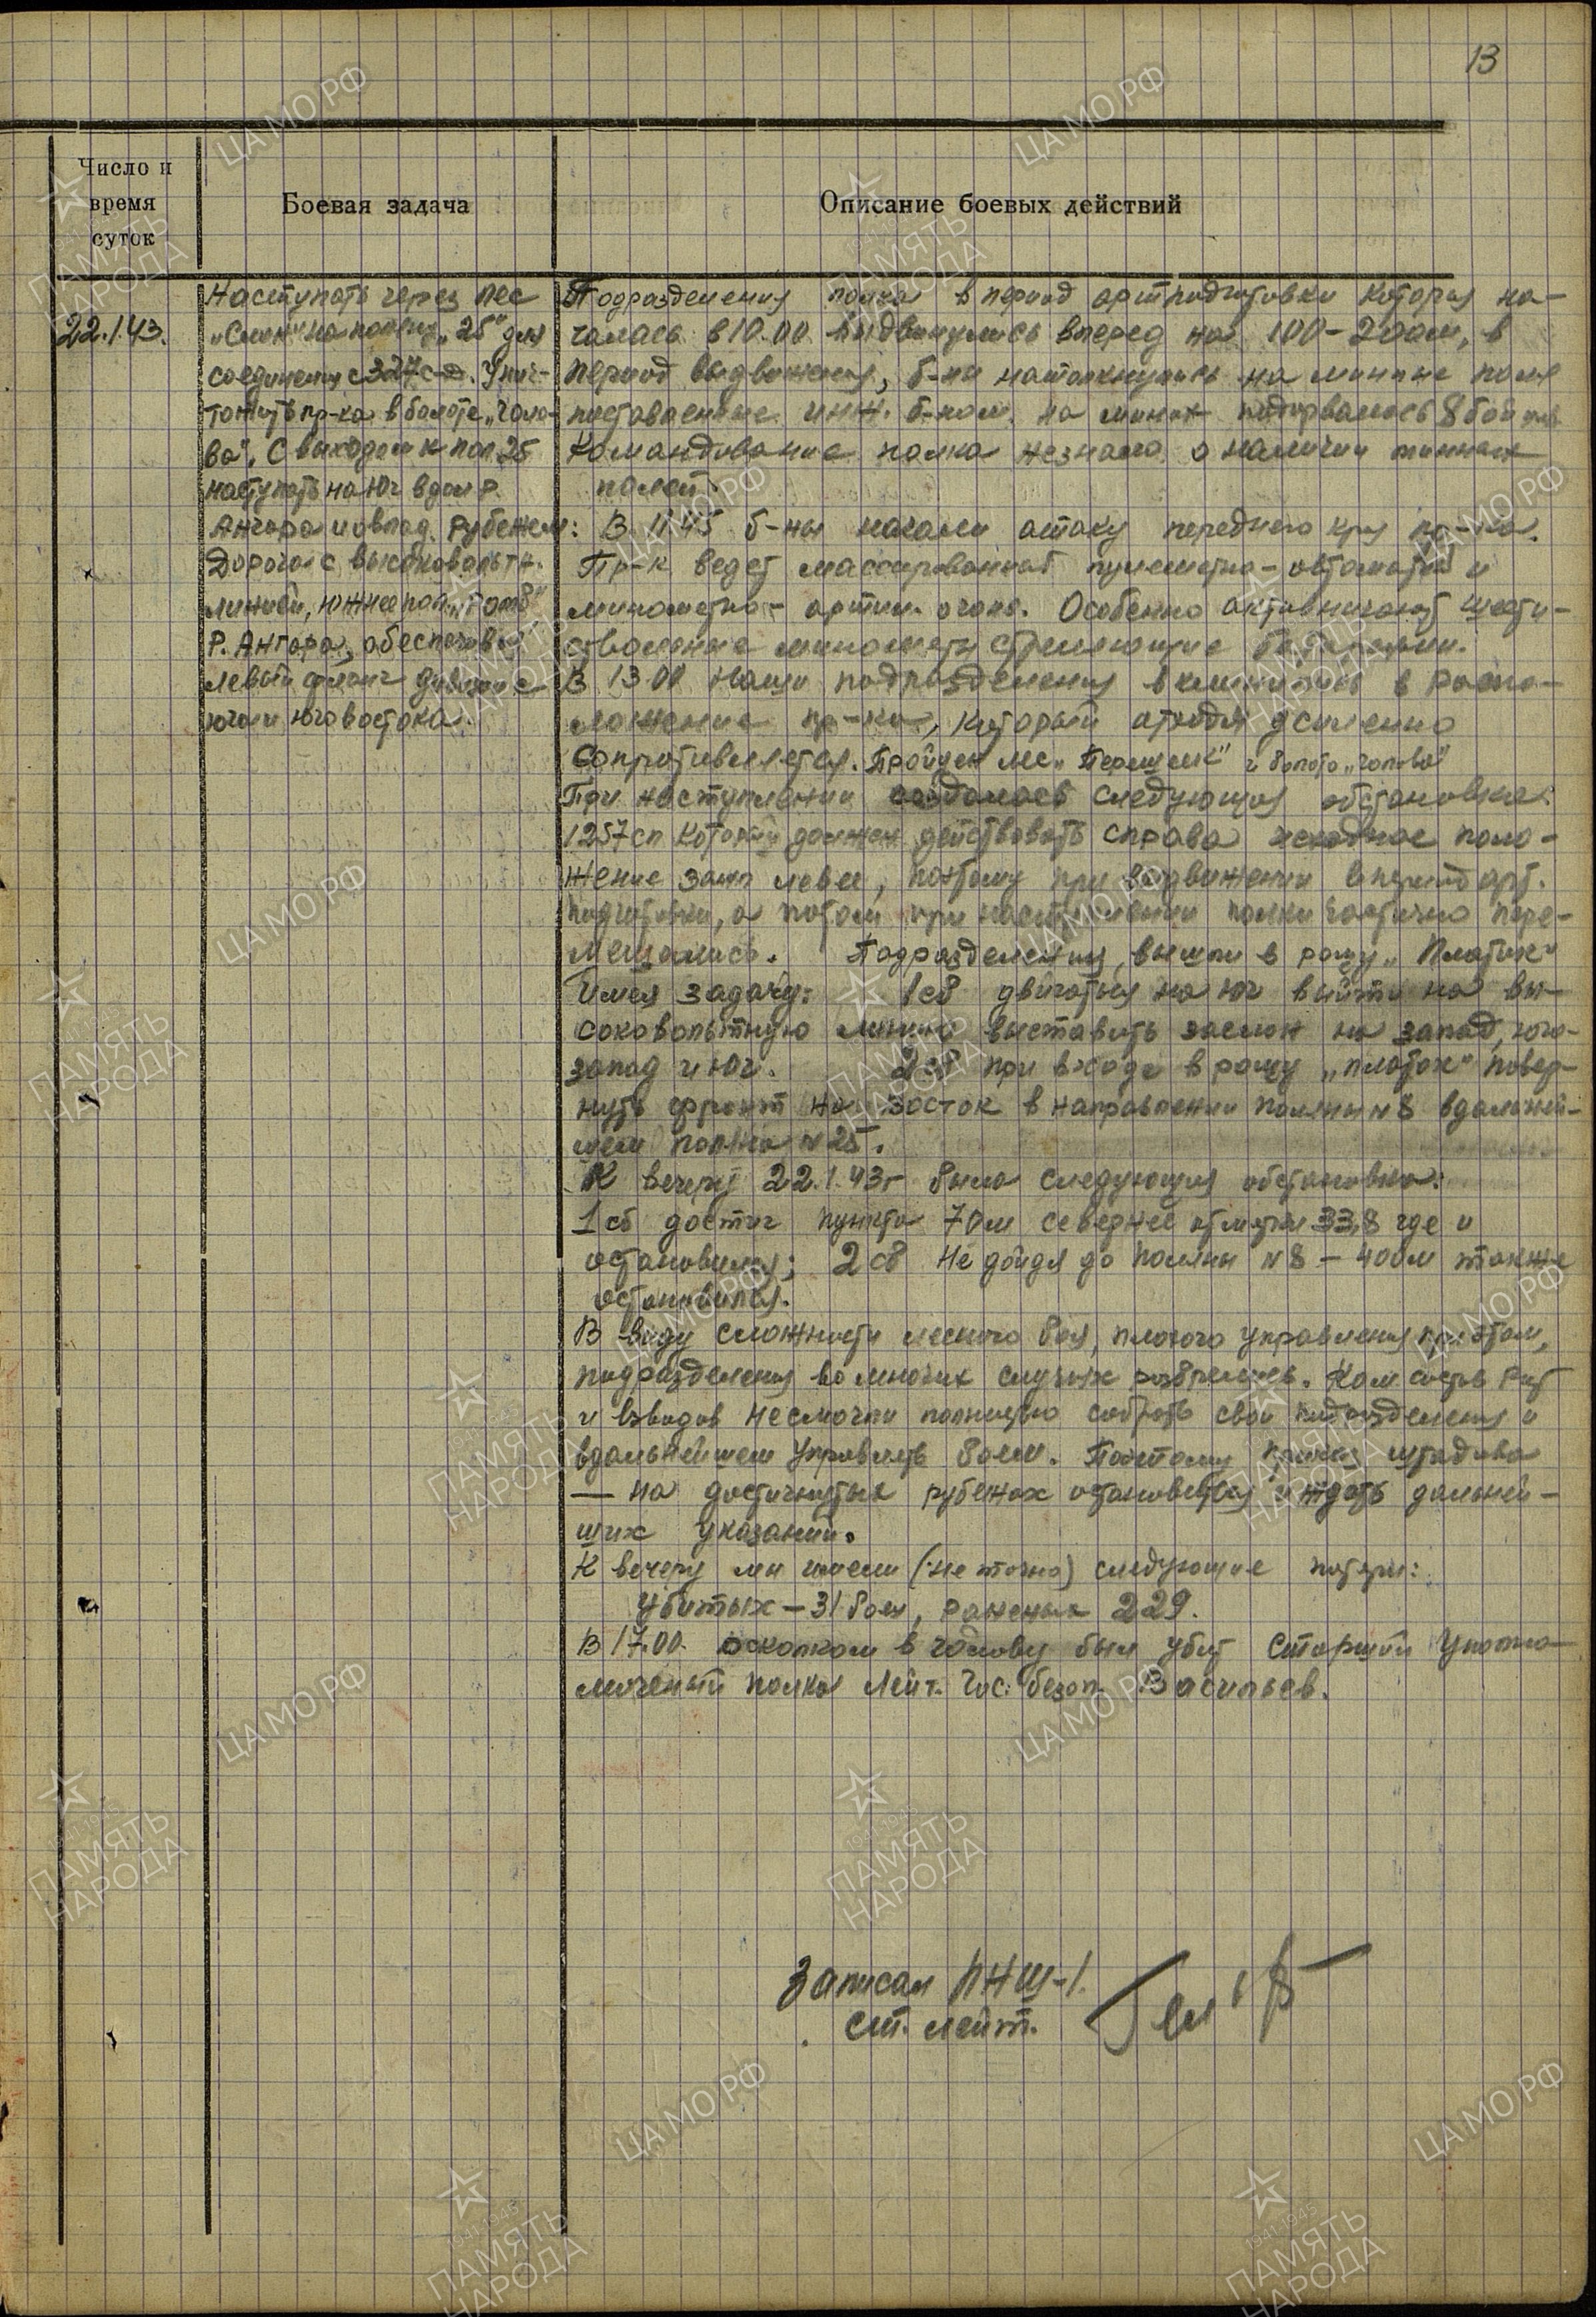 13
Число и
время
суток
Боевая задача
Описание боевых действий
22.1.43.
Наступать через лес
"Слон" на поляну "25" для
соединения с 327 сд. Унич-
тожить пр-ка в болоте "Голо-
ва". С выходом к пол 25
наступать на юг вдол р.
Ангара и овлад. рубежем:
Дорога с высоковольтн.
линией, южнее пол. "Ромб"
Р. Ангара, обеспечивая
левый фланг дивизии с
юга и юговостока.
Подразделения полка в период артподготовки которая на-
чалась в 10.00 выдвинулись вперед на 100-200м, в
период выдвижения, б-ны натолкнулись на минные поля
поставленные инж. б-ном. на минах подорвалось 8 бойцов
Командование полка незнало о наличии минных
полей.
В 11.45 б-ны начали атаку переднего края пр-ка.
Пр-к ведет массированный пулеметно-автоматн и
минометно-артил. огонь. Особенно активничают шести-
ствольные минометы стреляющие батареями.
В 13.00 Наши подразделения вклинились в распо-
ложение пр-ка, который отходя усиленно
сопротивляется. Пройден лес "Перешеек" и болото "голова"
При наступлении создалась следующая обстановка:
1257сп который должен действовать справа исходное поло-
жение занял левее, поэтому при выдвижении в период арт.
подготовки, а потом при наступлении полки частично пере-
мешались. Подразделения, вышли в рощу "Платок"
Имея задачу: 1сб двигаться на юг выйти на вы-
соковольтную линию выставить заслон на запад, юго-
запад и юг. 2сб при входе в рощу "платок" повер-
нуть фронт на восток в направлении поляны №8 вдальней-
шем поляна №25.
К вечеру 22.1.43г была следующая обстановка:
1сб достиг пункта 70м севернее отметки 33,8 где и
остановился; 2сб Не дойдя до поляны №8 - 400м также
остановился.
В виду сложности лесного боя, плохого управления при этом,
подразделения во многих случаях разбрелись. Ком состав рот
и взводов несмогли полностью собрать свои подразделения и
вдальнейшем управлять боем. Поэтому приказ штадива
— на достигнутых рубежах остановиться и ждать дальней-
ших указаний.
К вечеру мы имели (не точно) следующие потери:
Убитых - 31 бое, раненых 229.
В 17.00 осколком в голову был убит старший уполно-
моченый полка лейт. Гос. безоп. Васильев.
Записал ПНШ-1.
ст. лейт.
ЦА МО РФ
1941-1945
ПАМЯТЬ
НАРОДА